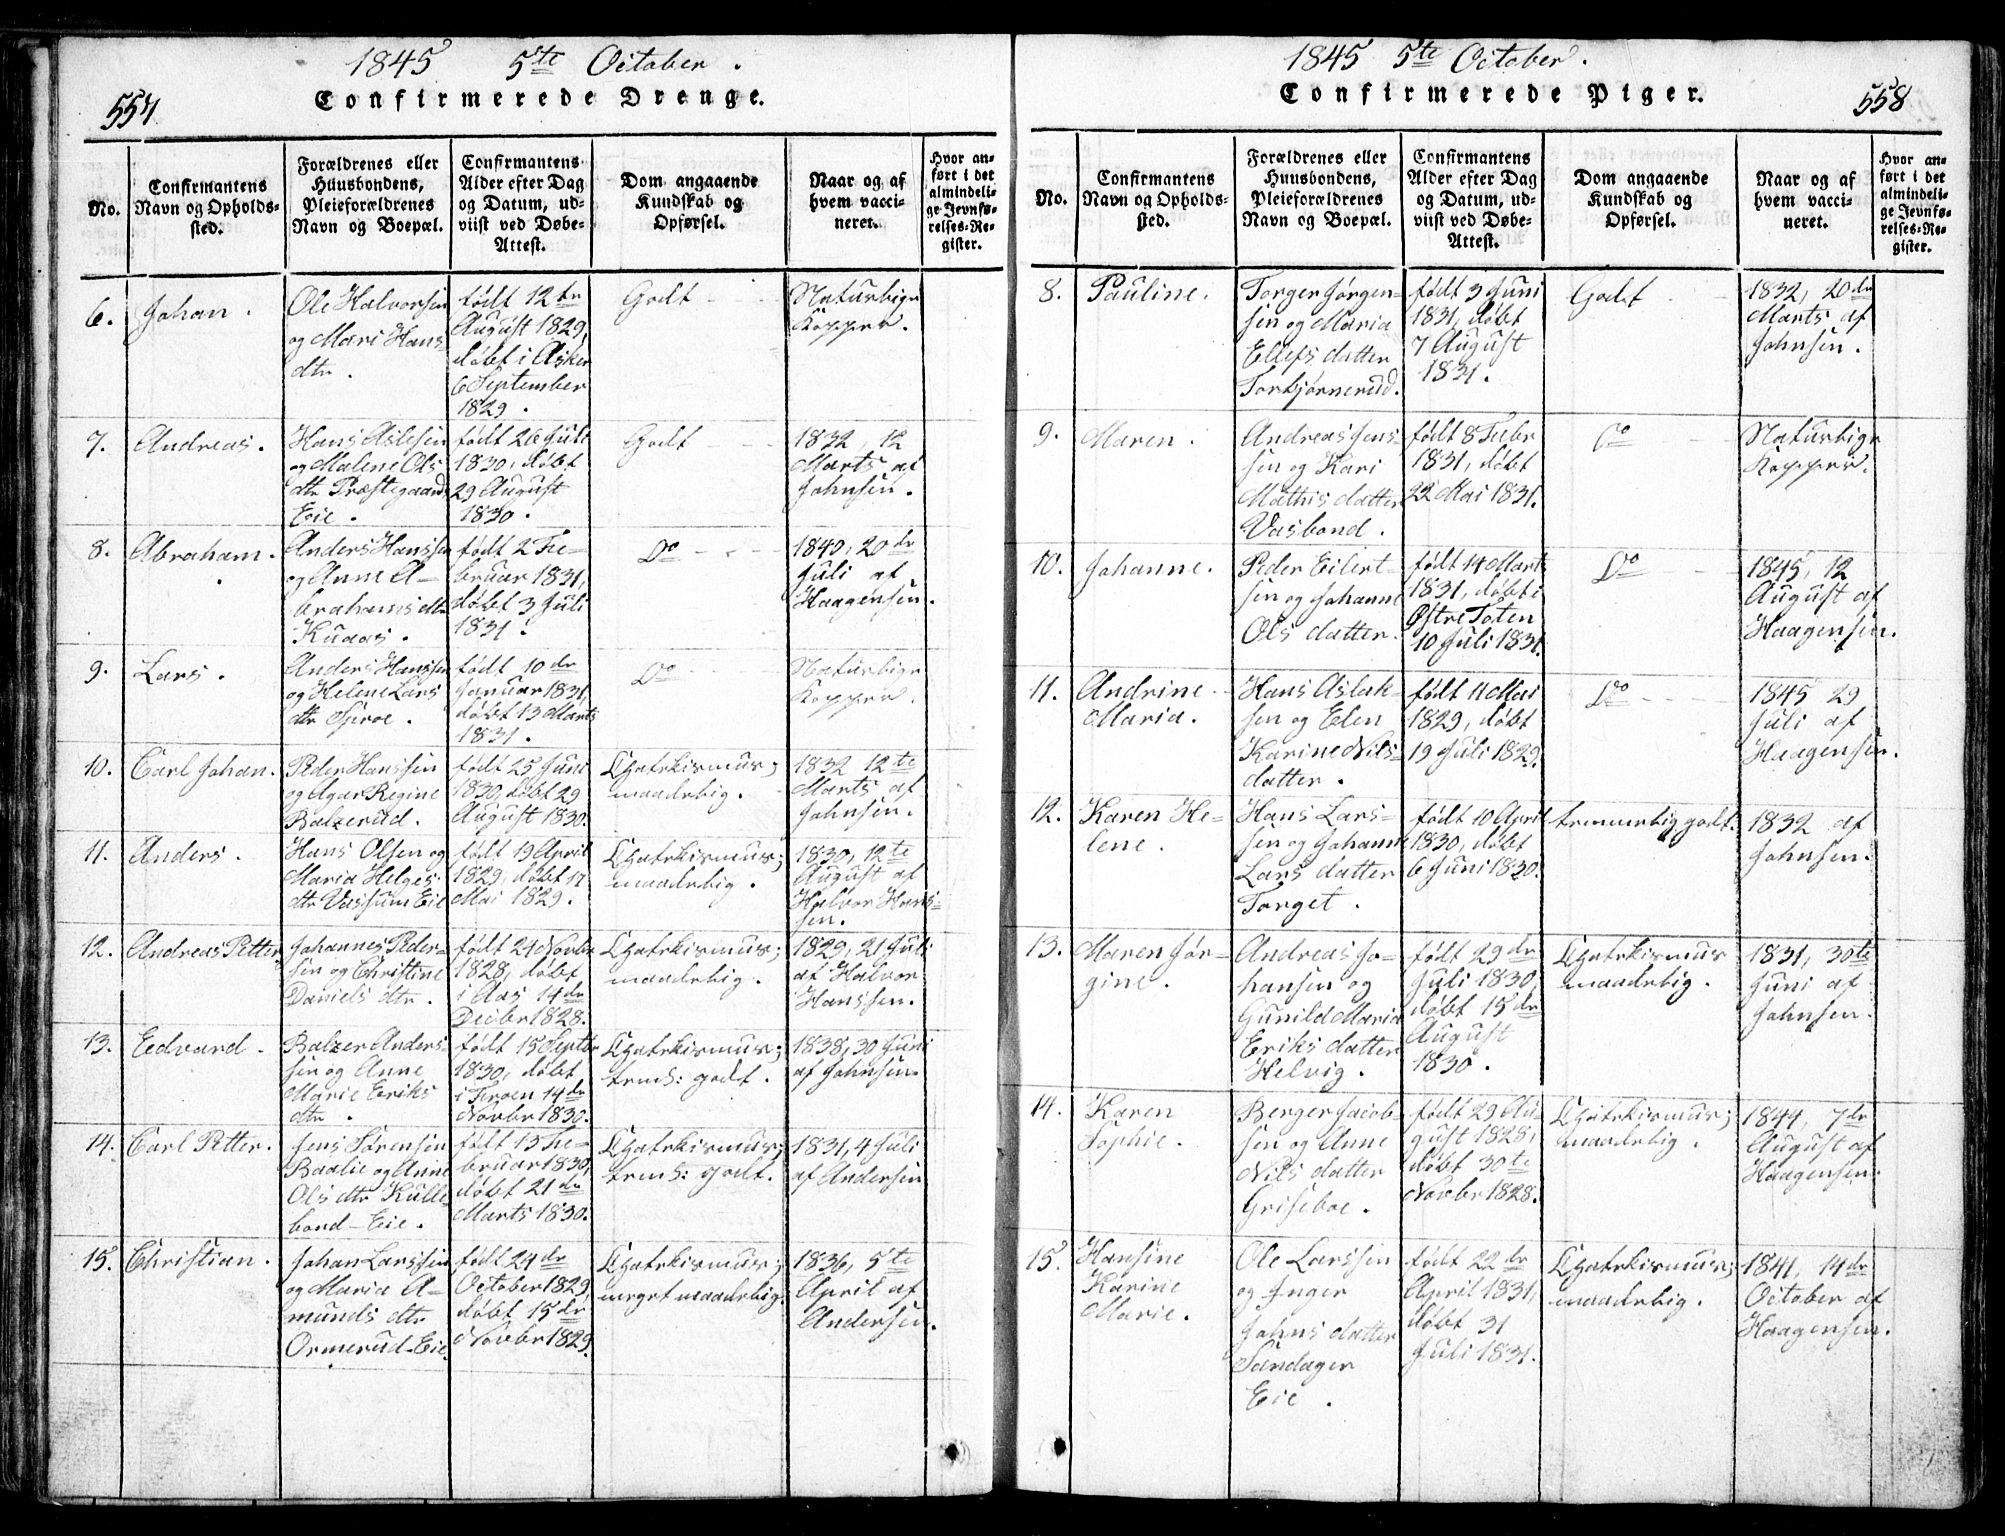 1845 5te October.
554
Confirmerede Drenge.
No.
Confirmantens
Navn og Opholds-
sted.
Forældrenes eller
Huusbondens,
Pleieforældrenes
Navn og Boepæl.
Confirmantens
Alder efter Dag
og Datum, ud-
viist ved Døbe-
Attest.
Dom angaaende
Kundskab og
Opførsel.
Naar og af
hvem vacci-
neret.
Hvor an-
ført i det
almindeli-
ge Jevnfø-
relses-Re-
gister.
6.
Johan.
Ole Halvorsen
og Mari Hans
dtr.
født 12te
August 1829,
døbt i Asker
6 September
1829.
Godt
Naturlige
Kopper.
7.
Andreas.
Hans Aslesen
og Malene Ols
dtr Præstegaard
Eie.
født 26 Juli
1830, døbt
29 August
1830.
Godt
1832 12
Marts af
Johnsen.
8.
Abraham.
Anders Hanssen
og Anne A-
brahams dtr
Kuaas.
født 2 Fe-
bruar 1831,
døbt 3 Juli
1831.
Do
1840, 20de
Juli af
Haagensen.
9.
Lars.
Anders Hanssen
og Helene Lars
dtr Sproe.
født 10de
Januar 1831,
døbt 13 Marts
1831.
Do
Naturlige
Kopper.
10.
Carl Johan.
Peder Hanssen
og Agar Regine
Balzerud.
født 25 Juni
1830, døbt 29
August 1830.
Chatekismus;
maadelig.
1832 12te
Marts af
Johnsen.
11.
Anders.
Hans Olsen og
Maria Helges
dtr Vassum Eie
født 19 April
1829, døbt 17
Mai 1829.
Chatekismus;
maadelig.
1830, 12te
August af
Halvor Hans-
sen.
12.
Andreas Petter
Johannes Peder-
sen og Christine
Daniels dtr.
født 24 Novbr
1828, døbt
i Aas 14de
Decbr 1828.
Chatekismus;
maadelig.
1829, 21 Juli
af Halvor
Hanssen.
13.
Eedvard.
Balzer Anders-
sen og Anne
Marie Eriks
dtr.
født 15 Septbr
1830, døbt
i Froen 14de
Novbr 1830.
Chatekismus;
tems: godt.
1838, 30 Juni
af Johnsen.
14.
Carl Petter.
Jens Sørensen
Baalie og Anne
Ols dtr Kulle-
bond-Eie.
født 13 Fe-
bruar 1830,
døbt 21de
Marts 1830.
Chatekismus;
tems: godt.
1831, 4 Juli
af Andersen
15.
Christian.
Johan Larssen
og Maria A-
munds dtr
Ormerud-Eie.
født 24de
October 1829,
døbt 15de
Novbr 1829.
Chatekismus;
meget maadelig.
1836, 5te
April af
Andersen.
1845 5te October.
Confirmerede Piger.
558
No.
Confirmantens
Navn og Opholds-
sted.
Forældrenes eller
Huusbondens,
Pleieforældrenes
Navn og Boepæl.
Confirmantens
Alder efter Dag
og Datum, ud-
viist ved Døbe-
Attest.
Dom angaaende
Kundskab og
Opførsel.
Naar og af
hvem vacci-
neret.
Hvor an-
ført i det
almindeli-
ge Jevnfø-
relses-Re-
gister.
8.
Pauline.
Torger Jørgen-
sen og Maria
Ellefs datter
Torkjørnerud.
født 3 Juni
1831, døbt
7 August
1831.
Godt
1832, 20de
Marts af
Johnsen.
9.
Maren.
Andreas Jens-
sen og Kari
Mathis datter
Vasbond.
født 8 Febr
1831, døbt
22 Mai 1831.
Do
Naturlige
Kopper.
10.
Johanne.
Peder Eilert-
sen og Johanne
Ols datter.
født 14 Marts
1831, døbt i
Østre Toten
10 Juli 1831.
Do
1845, 12
August af
Haagensen.
11.
Andrine
Maria.
Hans Aslak-
sen og Elen
Karine Nils-
datter.
født 11 Mai
1829, døbt
19 Juli 1829.
Do
1845 29
Juli af
Haagensen.
12.
Karen He-
lene.
Hans Lars-
sen og Johanne
Lars datter
Torget.
født 10 April
1830, døbt
6 Juni 1830.
temmelig godt.
1832 af
Johnsen.
13.
Maren Jør-
gine.
Andreas Jo-
hansen og
Gunild Maria
Eriks datter
Helvig.
født 29de
Juli 1830,
døbt 15de
August
1830.
Chatekismus
maadelig.
1831, 30te
Juni af
Johnsen.
14.
Karen
Sophie.
Berger Jacob-
sen og Anne
Nils datter
Griseboe.
født 29 Au-
gust 1828,
døbt 30te
Novbr 1828.
Chatekismus;
maadelig.
1844, 7de
August af
Haagensen.
15.
Hansine
Karine
Marie.
Ole Larssen
og Inger
Johns datter
Søndagen
Eie.
født 22de
April 1831,
døbt 31
Juli 1831.
Chatekismus;
maadelig.
1841, 14de
October af
Haagensen.